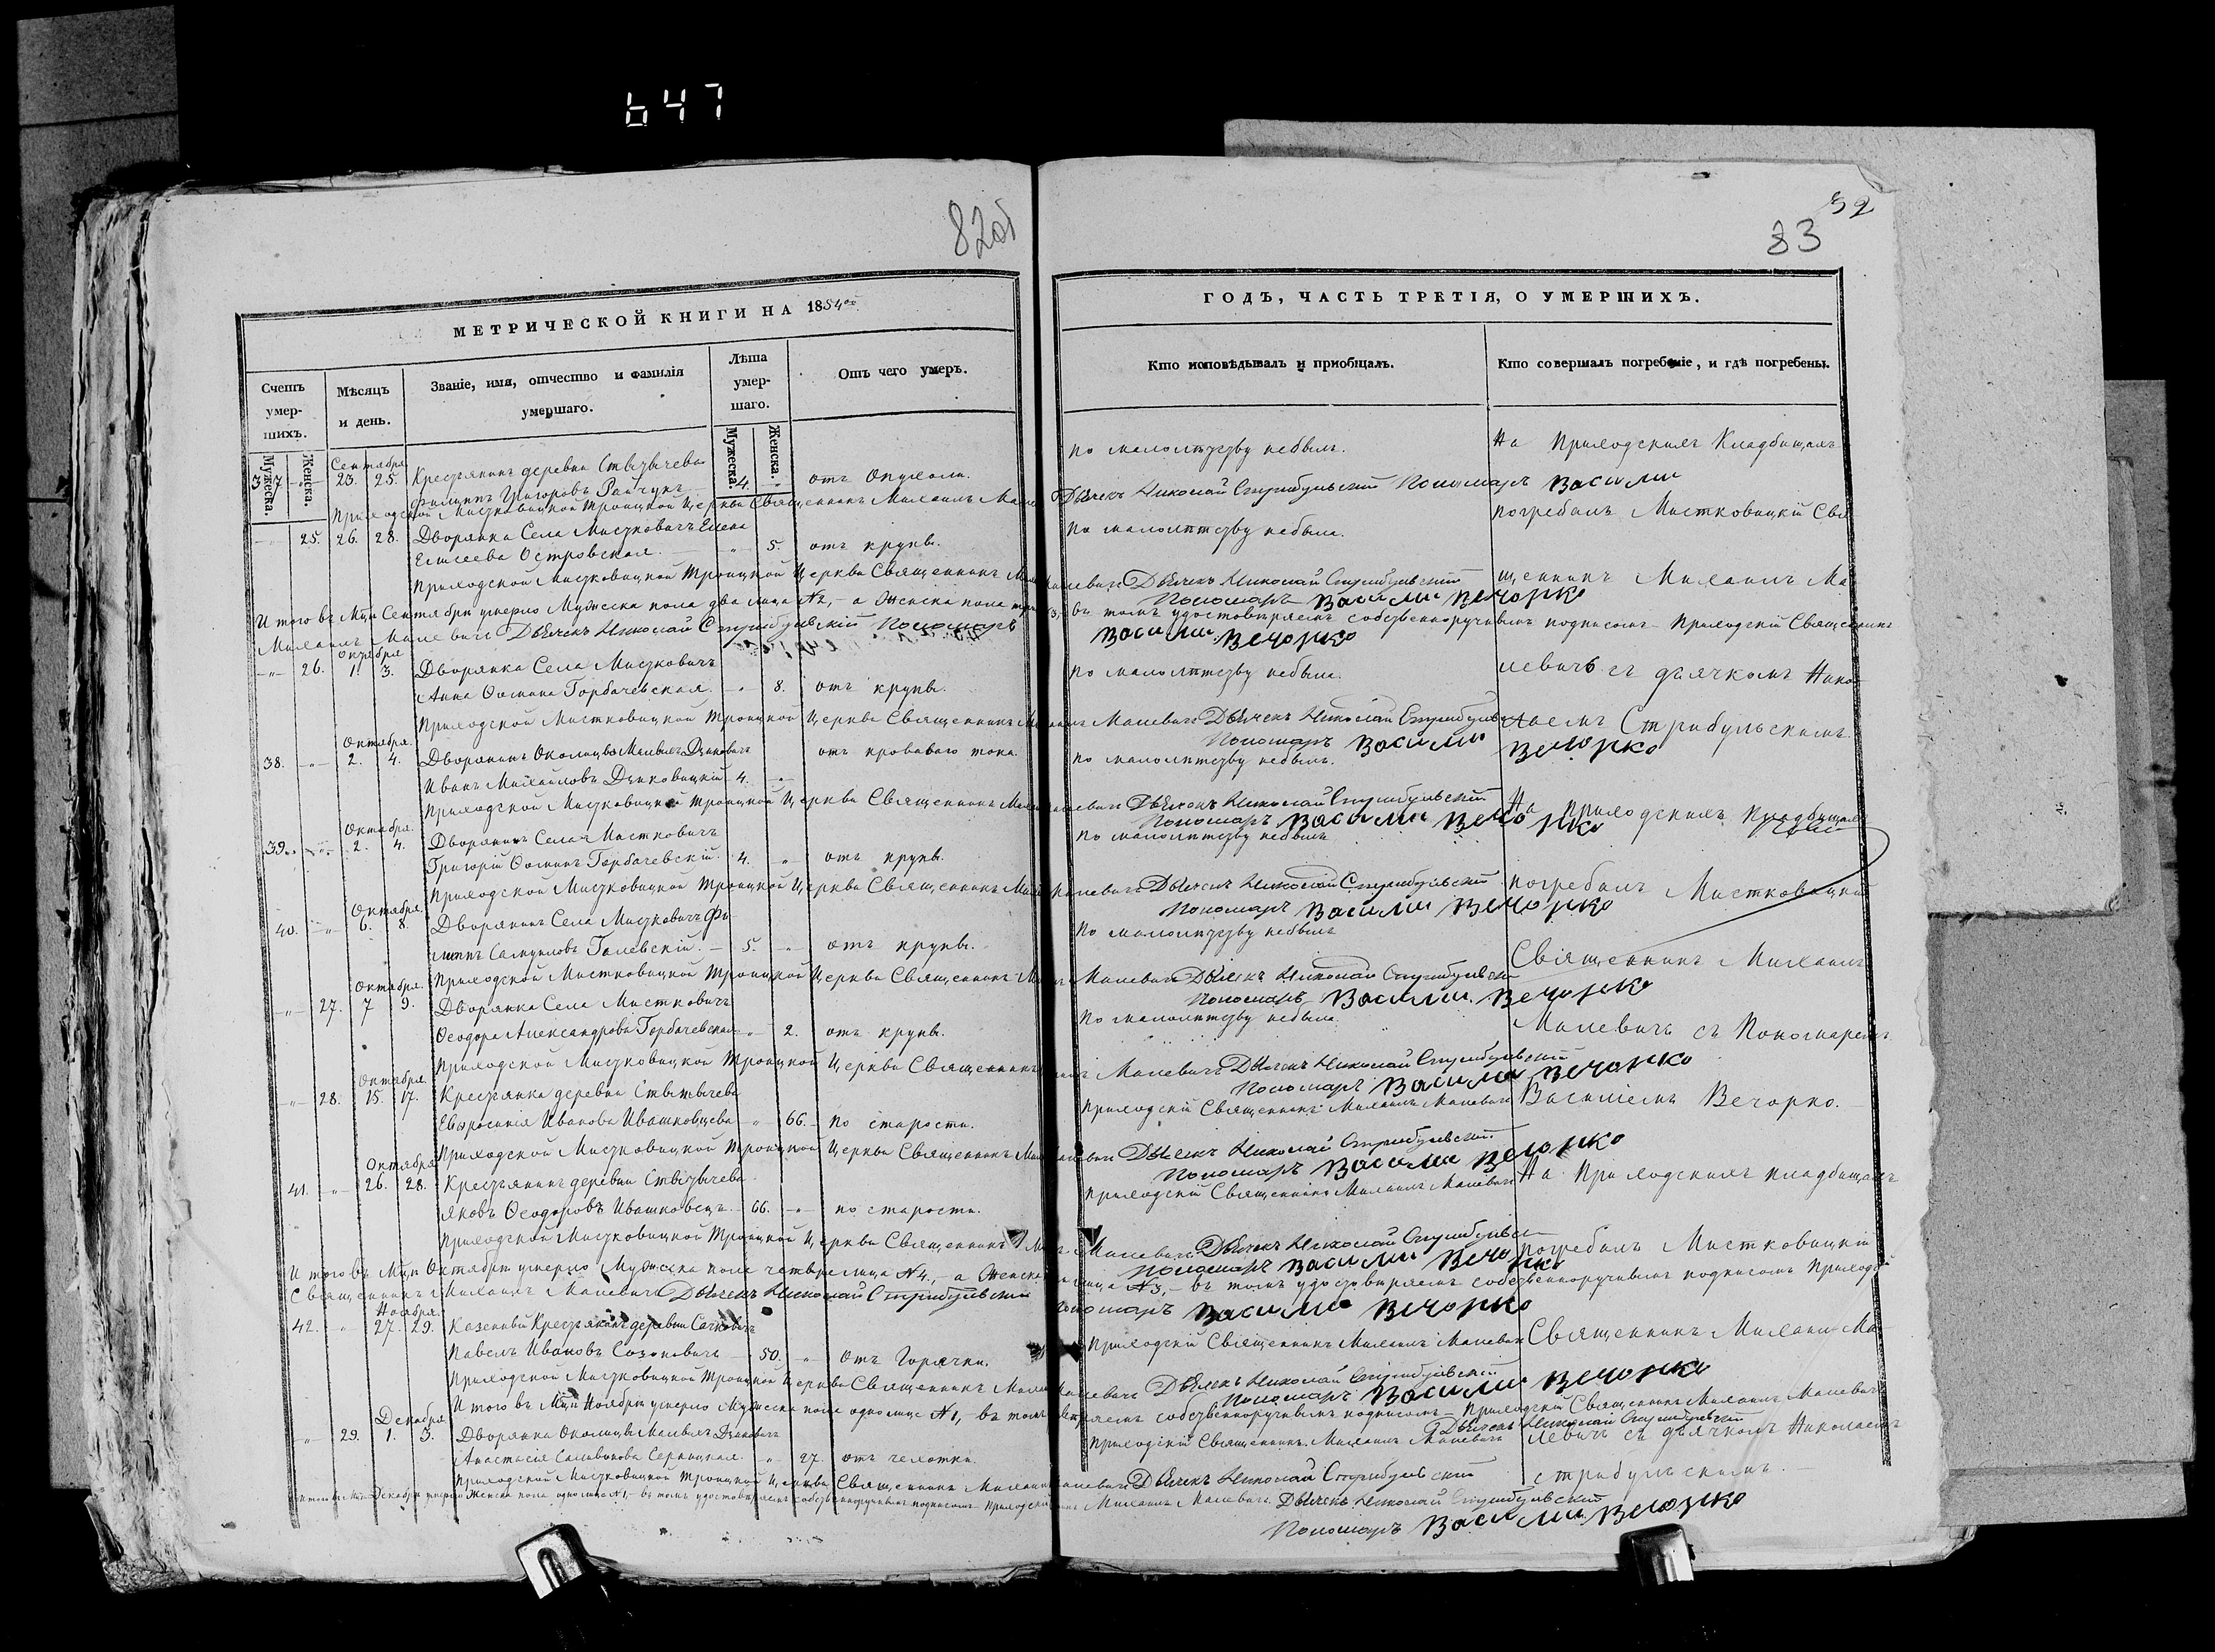 647
82об
МЕТРИЧЕСКОЙ КНИГИ НА 1854
Счетъ умер-шихъ.
Мужеска.
Женска.
Мѣсяцъ и день.
Званіе, имя, отчество и фамилія умершаго.
Лѣта умер-шаго.
Мужеска.
Женска.
Отъ чего умеръ.
Сентября
37 23. 25. Крестьянинъ деревни
Филиппъ Григоровъ 4. отъ
Приходской Мистковицкой Троицкой Церкви Священникъ Михаилъ
25. 26. 28. Дворянка Села Мистковичъ Елена
Елисеева Островская. 5. отъ крупы.
Приходской Мистковицкой Троицкой Церкви Священникъ
И того въ Мцѣ Сентябрѣ умерло Мужеска пола два лица № 2, - а Женска пола
Михаилъ Малевичъ Дьячекъ Николай Стрибульскій Пономарь
Октября
26. 1. 3. Дворянка Села Мистковичъ
Анна Ѳомина Горбачевская. 8. отъ крупы.
Приходской Мистковицкой Троицкой Церкви Священникъ
Октября.
38. 2. 4. Дворянинъ Околицы отъ кроваваго тока.
Иванъ Михайловъ 4.
Приходской Мистковицкой Троицкой Церкви Священникъ
Октября.
39. 2. 4. Дворянинъ Села Мистковичъ
Григорій Ѳоминъ Горбачевскій. 4. отъ крупы.
Приходской Мистковицкой Троицкой Церкви Священникъ
Октября.
40. 6. 8. Дворянинъ Села Мистковичъ Фи
липпъ Самуиловъ Галевскій. 5. отъ крупы.
Приходской Мистковицкой Троицкой Церкви Священникъ
Октября.
27. 7 9. Дворянка Села Мистковичъ
Ѳеодора Александрова Горбачевская 2. отъ крупы.
Приходской Мистковицкой Троицкой Церкви Священникъ
Октября.
28. 15. 17. Крестьянка деревни
Евфросинія Иванова Ивашковцева 66. по старости.
Приходской Мистковицкой Троицкой Церкви Священникъ
Октября
41. 26. 28. Крестьянинъ деревни
Яковъ Ѳеодоровъ Ивашковецъ 66. по старости.
Приходской Мистковицкой Троицкой Церкви Священникъ
И того въ Мцѣ Октябрѣ умерло Мужеска пола четыре лица № 4, - а Женска
Священникъ Михаилъ Малевичъ Дьячекъ Николай Стрибульскій
Ноября.
42. 27. 29. Казенный Крестьянинъ деревни
Павелъ Ивановъ 50. Отъ Горячки.
Приходской Мистковицкой Троицкой Церкви Священникъ
И того въ Мцѣ Ноябрѣ умерло Мужеска пола одно лице № 1, въ томъ
Декабря
29. 1. 3. Дворянка Околицы
Анастасія 27. отъ чахотки.
Приходской Мистковицкой Троицкой Церкви Священникъ Михаилъ
Декабрѣ умерло Женска пола одно лице № 1, - въ томъ удостовѣряемъ собственноручнымъ подписомъ
32
83
ГОДЪ, ЧАСТЬ ТРЕТІЯ, О УМЕРШИХЪ.
Кто исповѣдывалъ и пріобщалъ.
Кто совершалъ погребеніе, и гдѣ погребены.
По малолѣтству небылъ. На Приходскихъ Кладбищахъ
Дьячекъ Николай Стрибульскій Пономарь Васили
По малолѣтству небыла. погребалъ Мистковицкій Свя
Малевичъ Дьячекъ Николай Стрибульскій щенникъ Михаилъ Ма
Пономарь Васили Вечорко
въ томъ удостовѣряемъ собственноручнымъ подписомъ Приходскій Священникъ
Васили Вечорко
По малолѣтству небыла. левичъ съ дьячкомъ Нико
Малевичъ Дьячекъ Николай Стрибульскій лаемъ Стрибульскимъ.
Пономарь Васили Вечорко
По малолѣтству небылъ.
Малевичъ Дьячекъ Николай Стрибульскій На Приходскихъ Кладбищахъ
Пономарь Васили Вечорко
По малолѣтству небылъ
Малевичъ Дьячекъ Николай Стрибульскій погребалъ Мистковицкій
Пономарь Васили Вечорко
По малолѣтству небылъ
Священникъ Михаилъ
Малевичъ Дьячекъ Николай Стрибульскій
Пономарь Васили Вечорко
По малолѣтству небыла Малевичъ съ Пономаремъ
Малевичъ Дьячекъ Николай Стрибульскій
Пономарь Васили Вечорко
Приходскій Священникъ Михаилъ Малевичъ Василіемъ Вечорко.
Дьячекъ Николай Стрибульскій
Пономарь Васили Вечорко
Приходскій Священникъ Михаилъ Малевичъ На Приходскихъ кладбищахъ
Малевичъ Дьячекъ Николай Стрибульскій погребалъ Мистковицкій
Пономарь Васили Вечорко
лица № 3, - въ томъ удостовѣряемъ собственноручнымъ подписомъ Приходскій
Пономарь Васили Вечорко
Приходскій Священникъ Михаилъ Малевичъ Священникъ Михаилъ Ма
Малевичъ Дьячекъ Николай Стрибульскій
Пономарь Васили Вечорко
собственноручнымъ подписомъ - Приходскій Священникъ Михаилъ Малевичъ
Дьячекъ Николай Стрибульскій
Приходскій Священникъ Михаилъ Малевичъ левичъ съ дьячкомъ Николаемъ
Малевичъ Дьячекъ Николай Стрибульскій стрибульскимъ.
Михаилъ Малевичъ Дьячекъ Николай Стрибульскій
Пономарь Васили Вечорко